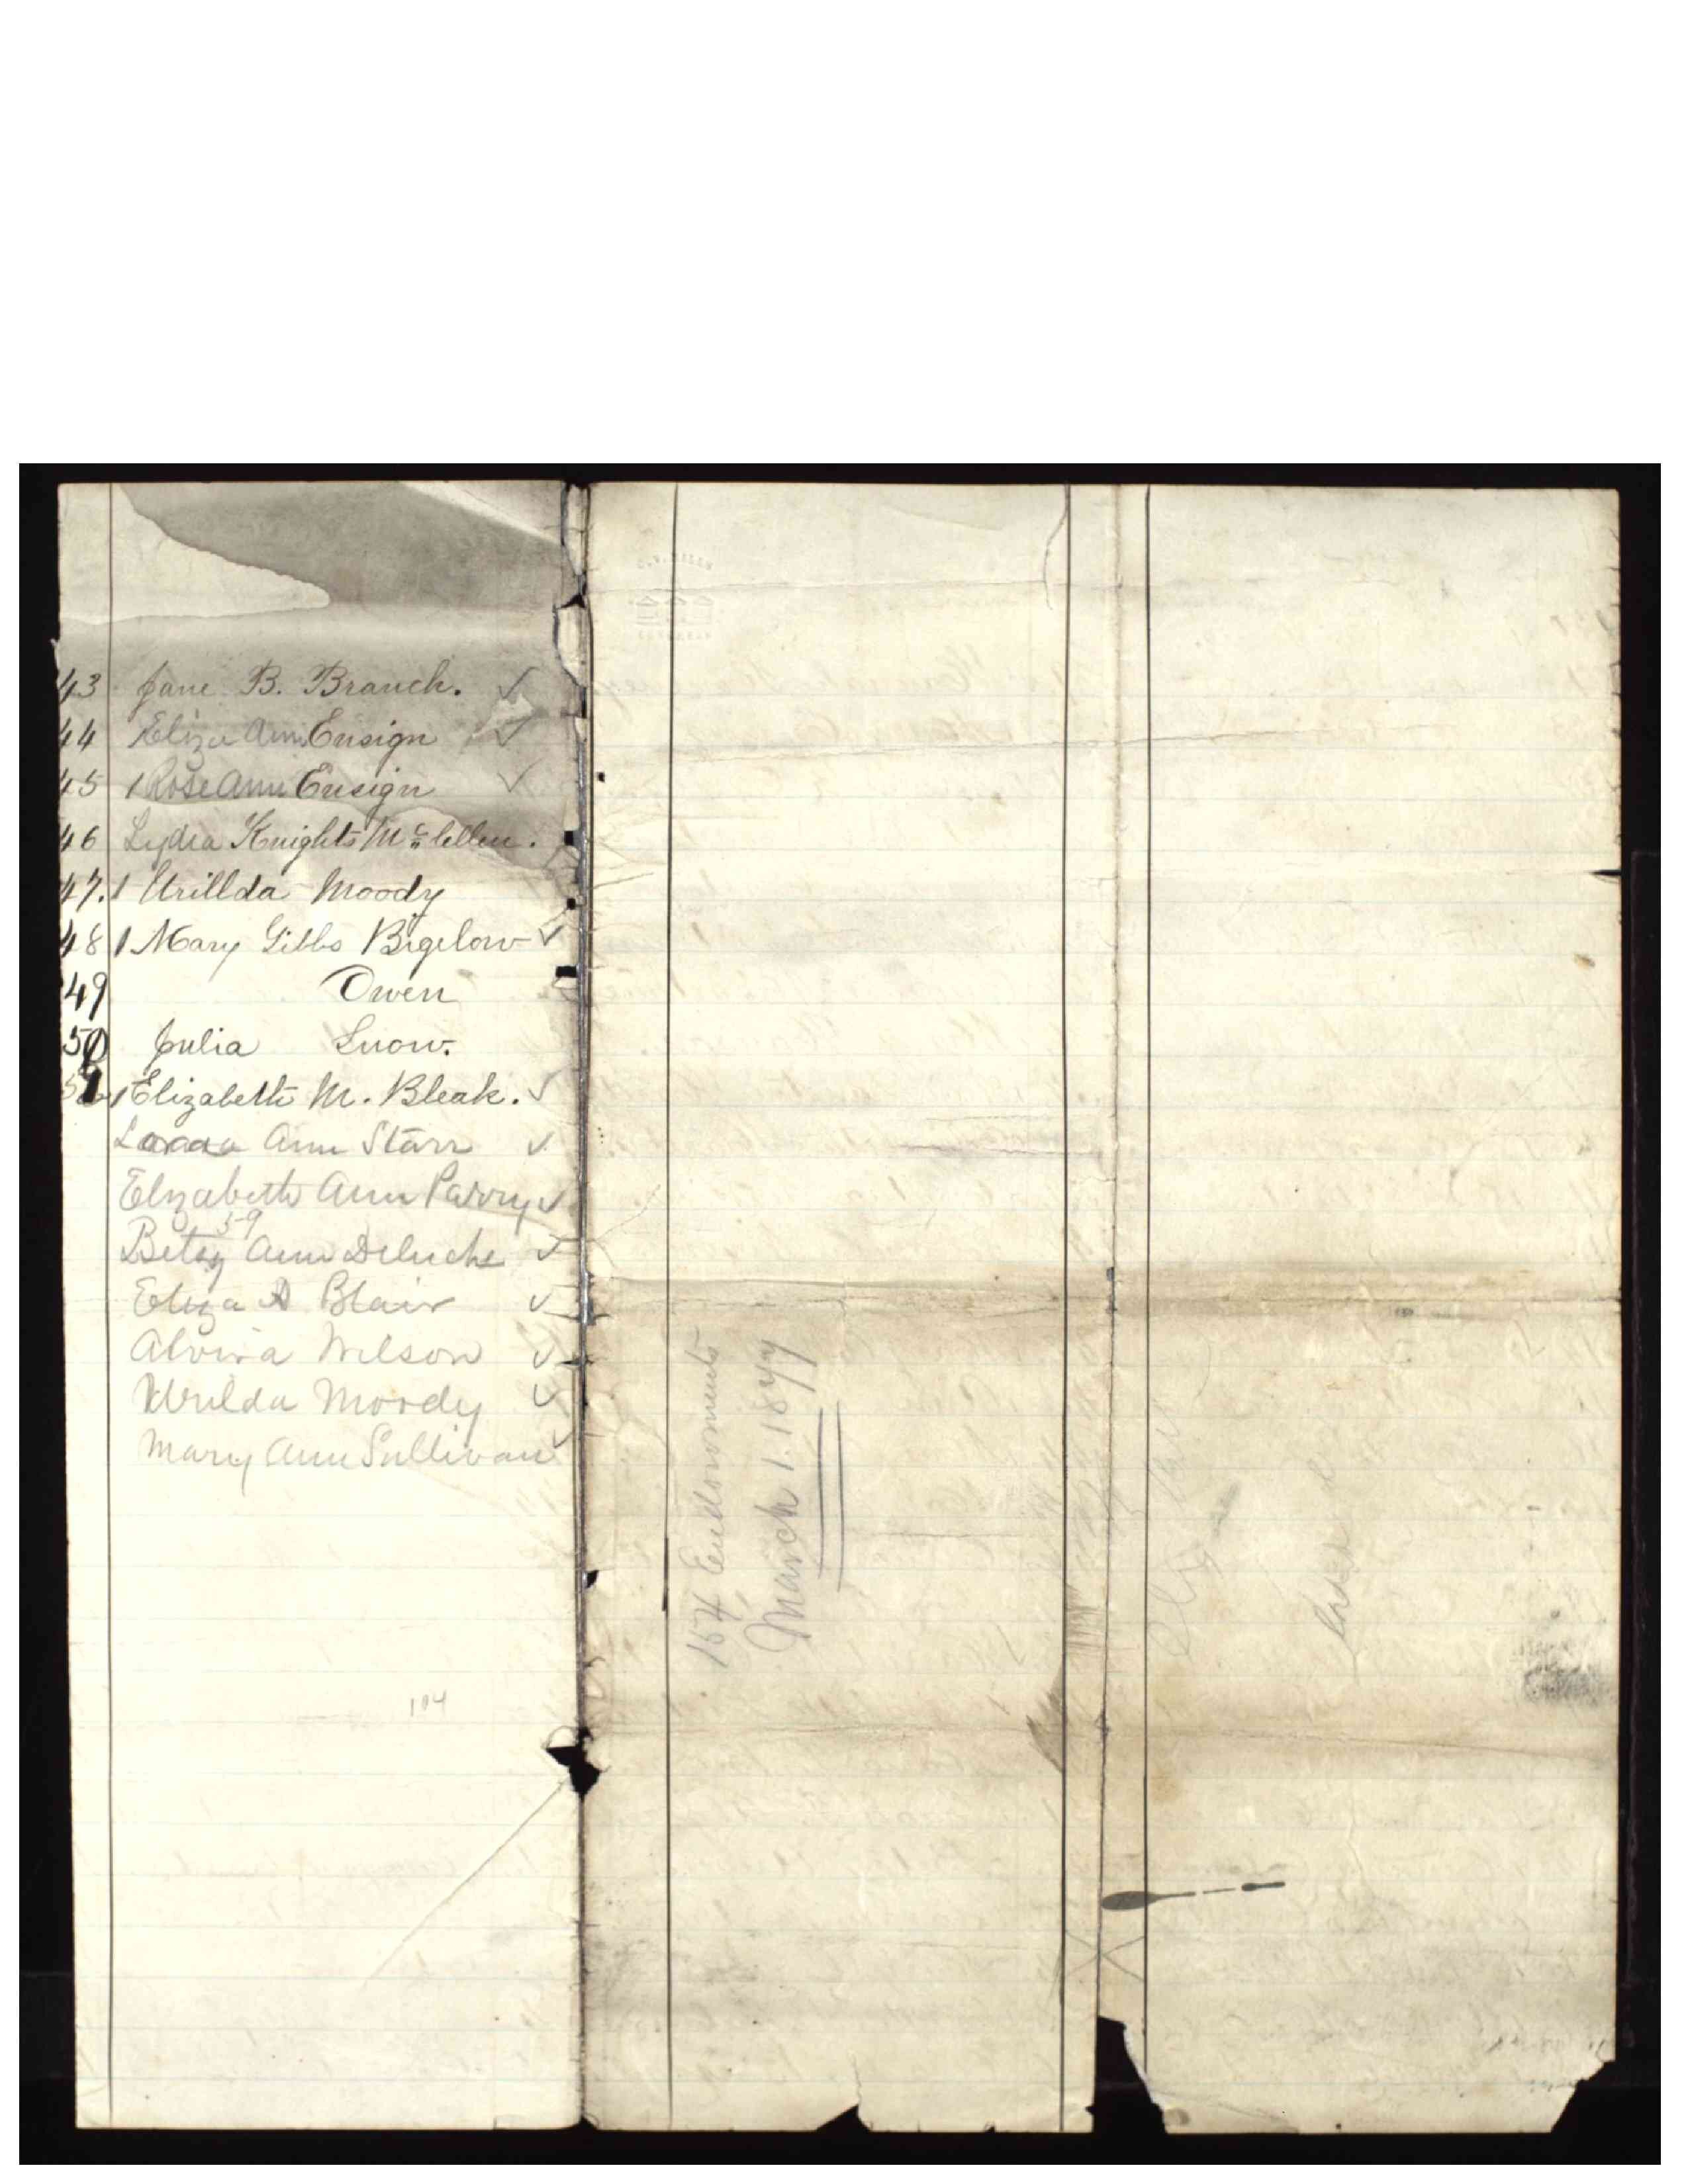 43 Jane B. Branch. ✓
44 Eliza Ann Ensign ✓
45 1 Rose Ann Ensign ✓
46 Lydia Knights Mc lellen.
47. 1 Urillda Moody
48 1 Mary Gibbs Bigelow ✓
49 Owen
50 Julia Snow.
51 1 Elizabeth M. Bleak. ✓
Ann Starr ✓
Elizabeth Ann Parry ✓
59
Betsy Ann ✓
Eliza A Blair ✓
Alvira Wilson ✓
Urilda Moody ✓
Mary Ann Sullivan ✓
104
154 Endowments
March 1. 1877